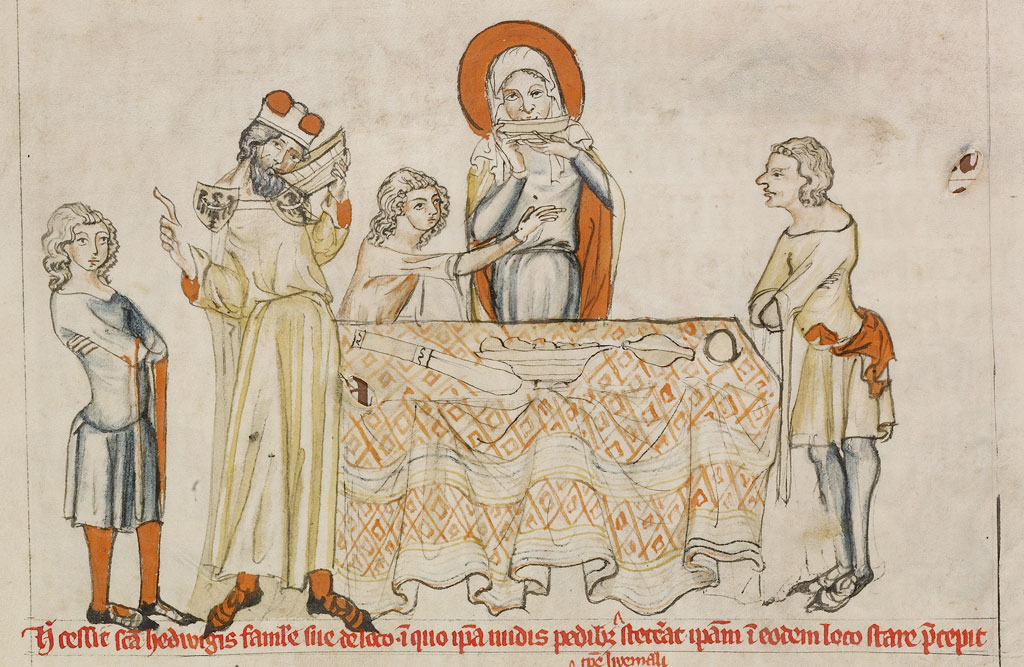 Hͥ cessit sc̄a hedwigis famule sue de loco ī quo ip̄a nudis pedibꝫ ‸ stet̄at ip̄am ī eodem loco stare p̄cepit
‸ tp̄e hyemali